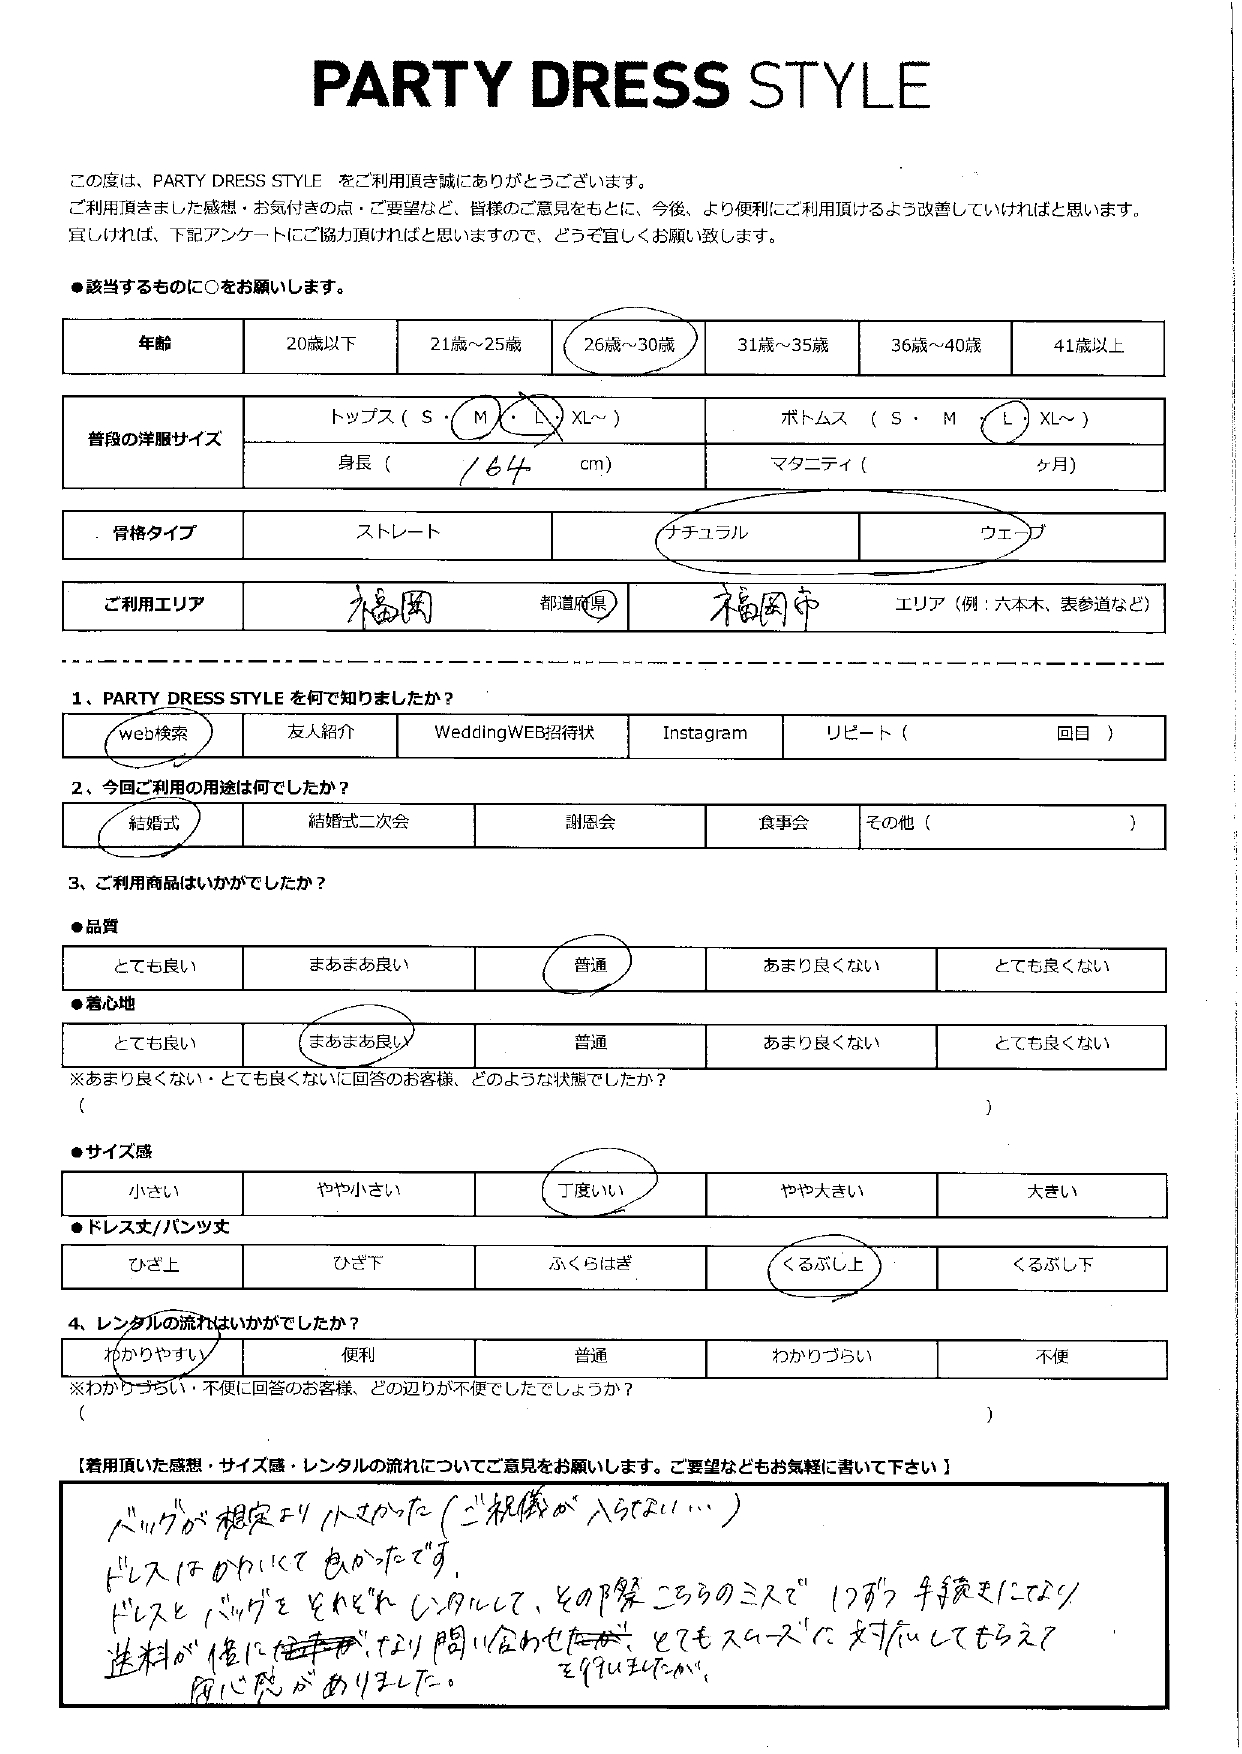 PARTY DRESS STYLE
この度は、PARTY DRESS STYLE　をご利用頂き誠にありがとうございます。
ご利用頂きました感想・お気付きの点・ご要望など、皆様のご意見をもとに、今後、より便利にご利用頂けるよう改善していければと思います。
宜しければ、下記アンケートにご協力頂ければと思いますので、どうぞ宜しくお願い致します。
●該当するものに○をお願いします。
年齢 20歳以下 21歳～25歳 26歳～30歳 31歳～35歳 36歳～40歳 41歳以上
普段の洋服サイズ トップス ( S ・ M ・ L ・ XL～ ) ボトムス ( S ・ M ・ L ・ XL～ )
身長 ( 164 cm) マタニティ ( ヶ月)
骨格タイプ ストレート ナチュラル ウェーブ
ご利用エリア 福岡 都道府県 福岡市 エリア（例：六本木、表参道など）
1、PARTY DRESS STYLE を何で知りましたか？
web検索 友人紹介 WeddingWEB招待状 Instagram リピート ( 回目 )
2、今回ご利用の用途は何でしたか？
結婚式 結婚式二次会 謝恩会 食事会 その他 ( )
3、ご利用商品はいかがでしたか？
●品質
とても良い まあまあ良い 普通 あまり良くない とても良くない
●着心地
とても良い まあまあ良い 普通 あまり良くない とても良くない
※あまり良くない・とても良くないに回答のお客様、どのような状態でしたか？
( )
●サイズ感
小さい やや小さい 丁度いい やや大きい 大きい
●ドレス丈/パンツ丈
ひざ上 ひざ下 ふくらはぎ くるぶし上 くるぶし下
4、レンタルの流れはいかがでしたか？
わかりやすい 便利 普通 わかりづらい 不便
※わかりづらい・不便に回答のお客様、どの辺りが不便でしたでしょうか？
( )
【着用頂いた感想・サイズ感・レンタルの流れについてご意見をお願いします。ご要望などもお気軽に書いて下さい 】
バッグが想定より小さかった(ご祝儀が入らない…)
ドレスはかわいくて良かったです。
ドレスとバッグをそれぞれレンタルして、その際こちらのミスで1つずつ手続きになり
送料が倍になり問い合わせ とてもスムーズに対応してもらえて
を行いましたが、
安心感がありました。